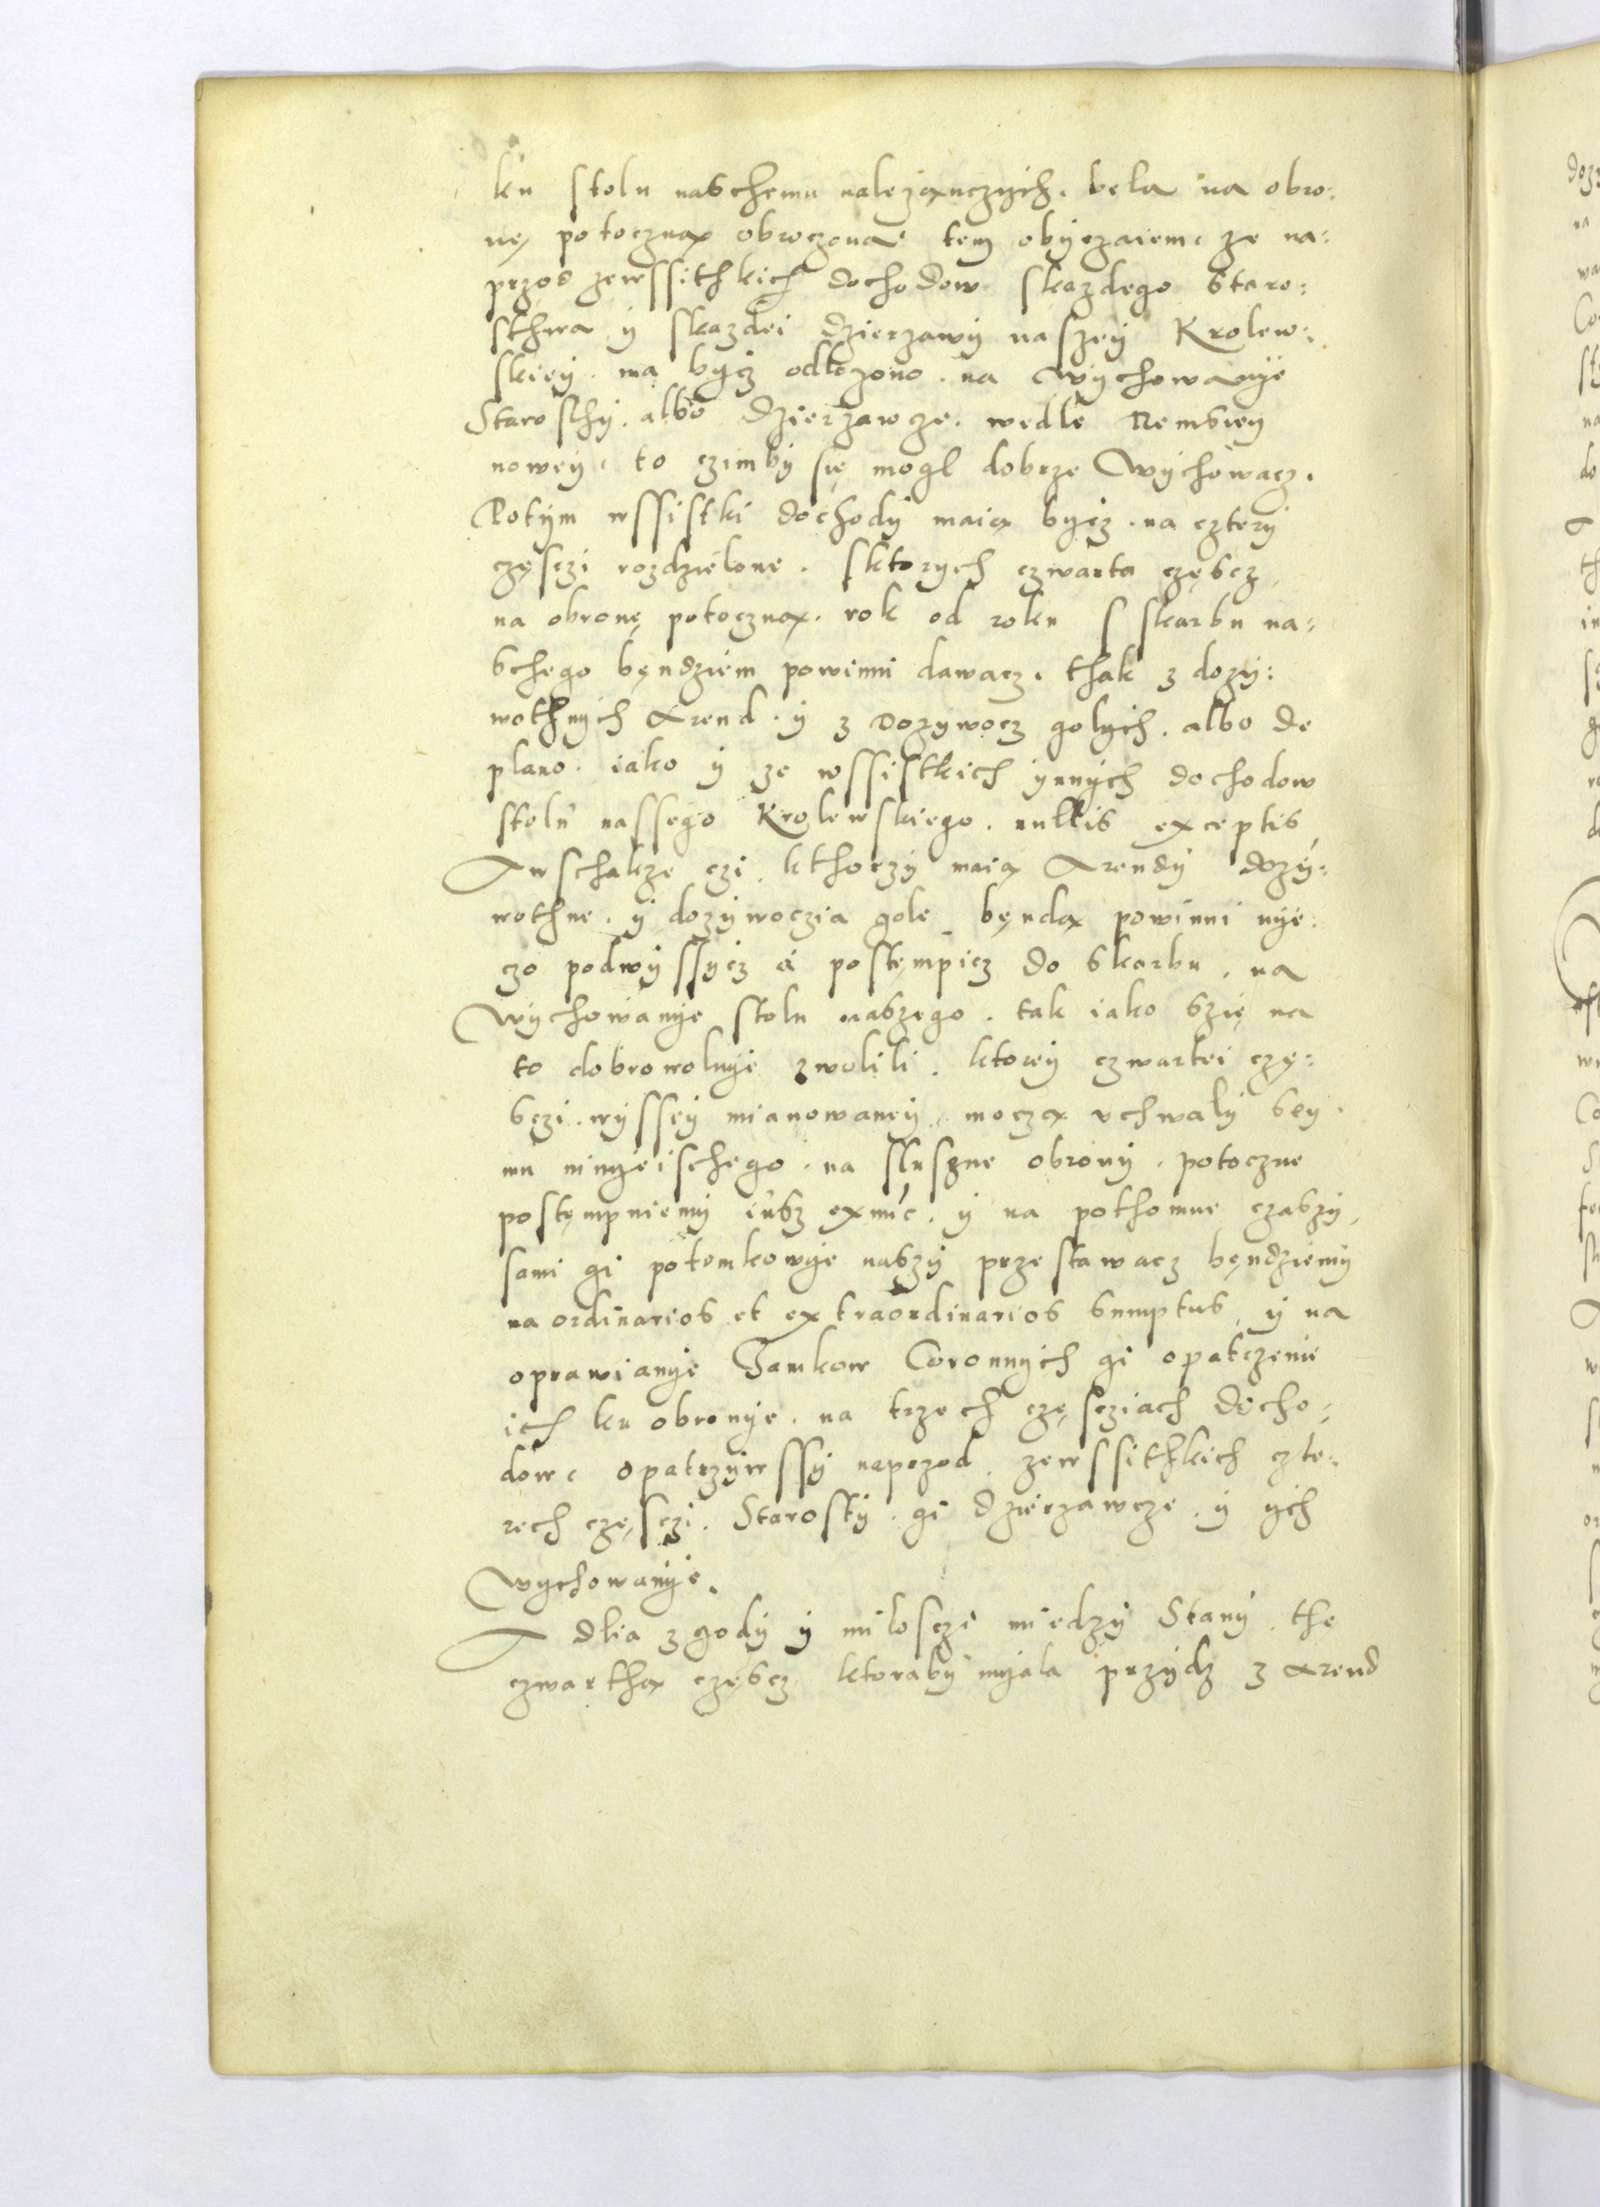 ku stolu naschemu należanczÿch. bela na obro:
nę potocznax obroczona tem obÿczaiem, ze na:
przod zewssithkich dochodow skazdego Staro:
sthwa ÿ skazdei dzierzawÿ naszeÿ Krolew:
skieÿ. ma bÿcz odłozono. na Wÿchowanÿe
Starosthÿ. albo dzierzawcze. wedle Remsieÿ
noweÿ, to czimbÿ się mogl dobrze Wÿchowacz.
Potÿm wssistki dochodÿ maiax bÿcz. na czterÿ
częsczi rozdzielone. sktorÿch czwarta częscz
na obronę potocznax. rok od roku s skarbu na:
schego bęndziem powinni dawacz. thak z dozÿ:
wothnÿch Arend. ÿ z Dozÿwocz golÿch. albo de
plano. iako ÿ ze wssistkich ÿnnÿch dochodow
stolu nassego Krolewskiego. nullis exceptis
Awschakze czi. kthorzÿ maiax Arendÿ dozÿ:
wothne. ÿ dozÿwoczia gole bęndax powinni nÿe:
czo podwÿssÿcz a postęmpicz do Skarbu. na
Wÿchowanÿe stolu naszego. tak iako szię na
to dobrowolnÿe zwolili. ktoreÿ czwartei czę:
sczi. wÿsseÿ mianowaneÿ, moczax vchwalÿ seÿ:
mu ninÿeischego. na sluszne obronÿ. potoczne
postęmpniemÿ iusz exnūc. ÿ na pothomne czaszÿ,
sami gi potomkowÿe naszÿ przestawacz bęndziemÿ
na ordinarios et extraordinarios sumptus, ÿ na
oprawianÿe Zamkow Coronnÿch gi opatczenie
ich ku obronÿe. na trzech częscziach docho:
dow, opatrzÿwssÿ naprzod. zewssithkich czte:
rech częsczi. Starostÿ. gi dzierzawcze. ÿ ÿch
Wÿchowanÿe.
A dlia zgodÿ ÿ milosczi miedzÿ Stanÿ. the
czwarthax częscz ktorabÿ mÿala przÿdz z Arend